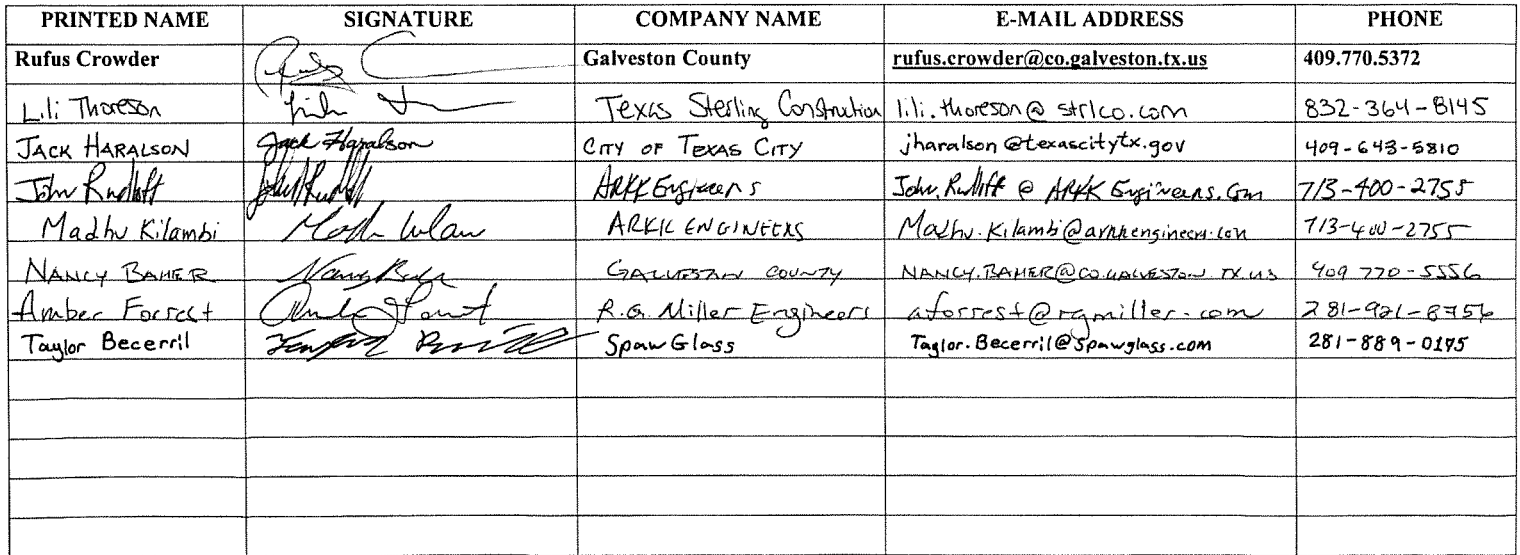 PRINTED NAME SIGNATURE COMPANY NAME E-MAIL ADDRESS PHONE
Rufus Crowder Galveston County rufus.crowder@co.galveston.tx.us 409.770.5372
Lili Thoreson Texas Sterling Construction lili.thoreson@strlco.com 832-364-8145
JACK HARALSON Jack Haralson CITY OF TEXAS CITY jharalson@texascitytx.gov 409-643-5810
John Rudloff ARKK Engineers 713-400-2755
Madhu Kilambi ARKK ENGINEERS Madhu.Kilambi@arkkengineers.com 713-400-2755
NANCY BAHER GALVESTON COUNTY NANCY.BAHER@CO.GALVESTON.TX.US 409 770-5556
Amber Forrest R.G. Miller Engineers aforrest@rgmiller.com 281-921-8756
Taylor Becerril SpawGlass Taylor.Becerril@spawglass.com 281-889-0175